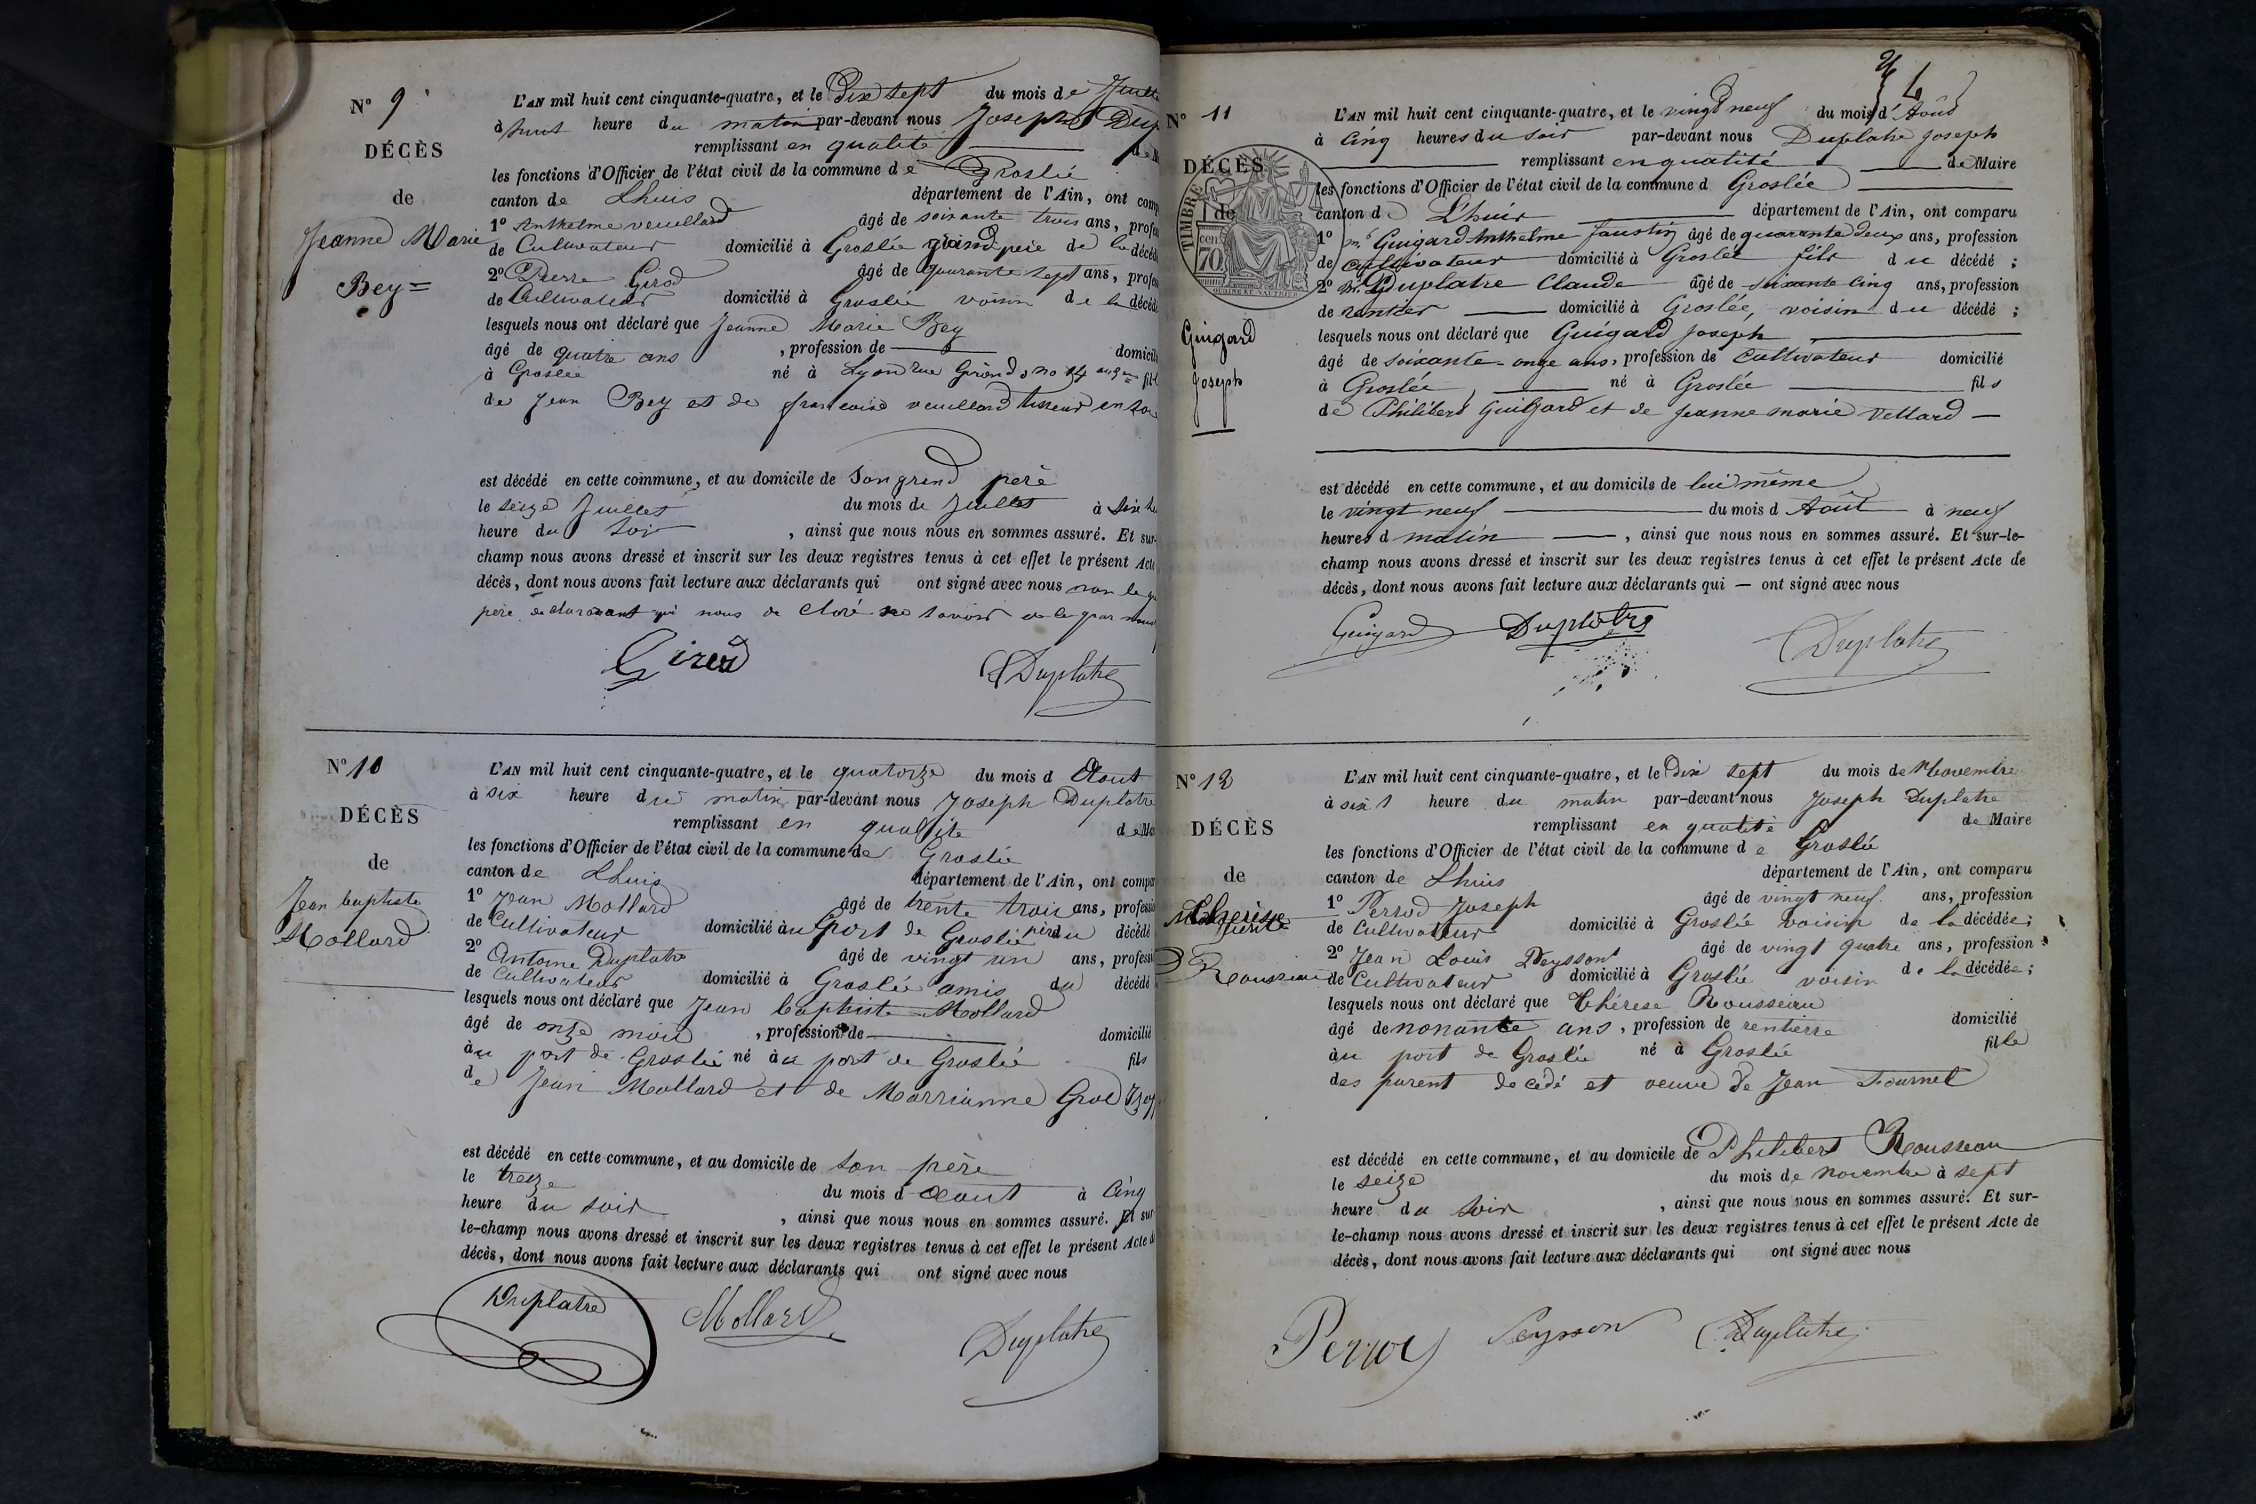 N° 9
DÉCÈS
de
Jeanne Marie
Bey =
L'AN mil huit cent cinquante-quatre, et le Dix sept du mois de
à huit heure du matin par-devant nous Joseph Dup
remplissant en qualité
les fonctions d'Officier de l'état civil de la commune de Groslée
canton de Lhuis département de l'Ain, ont comp
1° Anthelme veuillard âgé de soixante trois ans, profes
de Cultivateur domicilié à Groslée grand père de la décéd
2° Pierre Girod âgé de quarante sept ans, profes
de Cultivateur domicilié à Groslée voisin de la décéd
lesquels nous ont déclaré que Jeanne Marie Bey
âgé de quatre ans , profession de domicili
à Groslée né à Lyon rue no 14 fil
de Jean Bey et de francoise veuillard
est décédé en cette commune, et au domicile de son grend père
le seize Juillet du mois de Juillet à
heure du soir , ainsi que nous nous en sommes assuré. Et sur-
champ nous avons dressé et inscrit sur les deux registres tenus à cet effet le présent Acte
décès, dont nous avons fait lecture aux déclarants qui ont signé avec nous non le
père declarant qui nous a de claré ne savoir
Girod
Duplatre
N° 10
DÉCÈS
de
Jean baptiste
Mollard
L'AN mil huit cent cinquante-quatre, et le quatorze du mois d Aout
à six heure du matin par-devant nous Joseph Duplatre
remplissant en qualité de Ma
les fonctions d'Officier de l'état civil de la commune de Groslée
canton de Lhuis département de l'Ain, ont compa
1° Jean Mollard âgé de trente trois ans, professio
de Cultivateur domicilié au port de Groslée père du décédé
2° Antoine Duplatre âgé de vingt un ans, professi
de Cultivateur domicilié à Groslée amis du décédé
lesquels nous ont déclaré que Jean baptiste Mollard
âgé de onze mois , profession de domicilié
au port de Groslée né au port de Groslée fils
de Jean Mollard et de Marrianne
est décédé en cette commune, et au domicile de son père
le treize du mois d aout à cinq
heure du soir , ainsi que nous nous en sommes assuré. Et sur
le-champ nous avons dressé et inscrit sur les deux registres tenus à cet effet le présent Acte d
décès, dont nous avons fait lecture aux déclarants qui ont signé avec nous
Duplatre
Mollard
Duplatre
N° 11
DÉCÈS
de
TIMBRE
70
Guigard
Joseph
L'AN mil huit cent cinquante-quatre, et le vingt neuf du mois d'Août
à cinq heures du soir par-devant nous Duplatre joseph
remplissant en qualité de Maire
les fonctions d'Officier de l'état civil de la commune d Groslée
canton de Lhuis département de l'Ain, ont comparu
1° Guigard Anthelme faustin âgé de quarante deux ans, profession
de cultivateur domicilié à Groslée fils du décédé ;
2° Duplatre Claude âgé de soixante cinq ans, profession
de rentier domicilié à Groslée, voisin du décédé ;
lesquels nous ont déclaré que Guigard joseph
âgé de soixante-onze ans, profession de Cultivateur domicilié
à Groslée, né à Groslée fils
de Philibert Guigard et de jeanne marie Vettard
est décédé en cette commune, et au domicile de lui même
le vingt neuf du mois d Août à neuf
heures d matin , ainsi que nous nous en sommes assuré. Et sur-le-
champ nous avons dressé et inscrit sur les deux registres tenus à cet effet le présent Acte de
décès, dont nous avons fait lecture aux déclarants qui — ont signé avec nous
Guigard
Duplatre
Duplatre
N° 12
DÉCÈS
de
Rousseau
L'AN mil huit cent cinquante-quatre, et le Dix sept du mois de Novembre
à heure du matin par-devant nous Joseph Duplatre
remplissant en qualité de Maire
les fonctions d'Officier de l'état civil de la commune de Groslée
canton de Lhuis département de l'Ain, ont comparu
1° Perrod Joseph âgé de vingt neuf ans, profession
de Cultivateur domicilié à Groslée voisin de la décédée;
2° Jean Louis Peysson âgé de vingt quatre ans, profession
de Cultivateur domicilié à Groslée voisin de la décédée;
lesquels nous ont déclaré que Thérese Rousseau
âgé de nonante ans, profession de rentierre domicilié
au port de Groslée né à Groslée fille
des parent decédé et veuve de Jean Fournet
est décédé en cette commune, et au domicile de Philibert Rousseau
le seize du mois de novembre à sept
heure du soir , ainsi que nous nous en sommes assuré. Et sur-
le-champ nous avons dressé et inscrit sur les deux registres tenus à cet effet le présent Acte de
décès, dont nous avons fait lecture aux déclarants qui ont signé avec nous
Perrod
Peysson
Duplatre